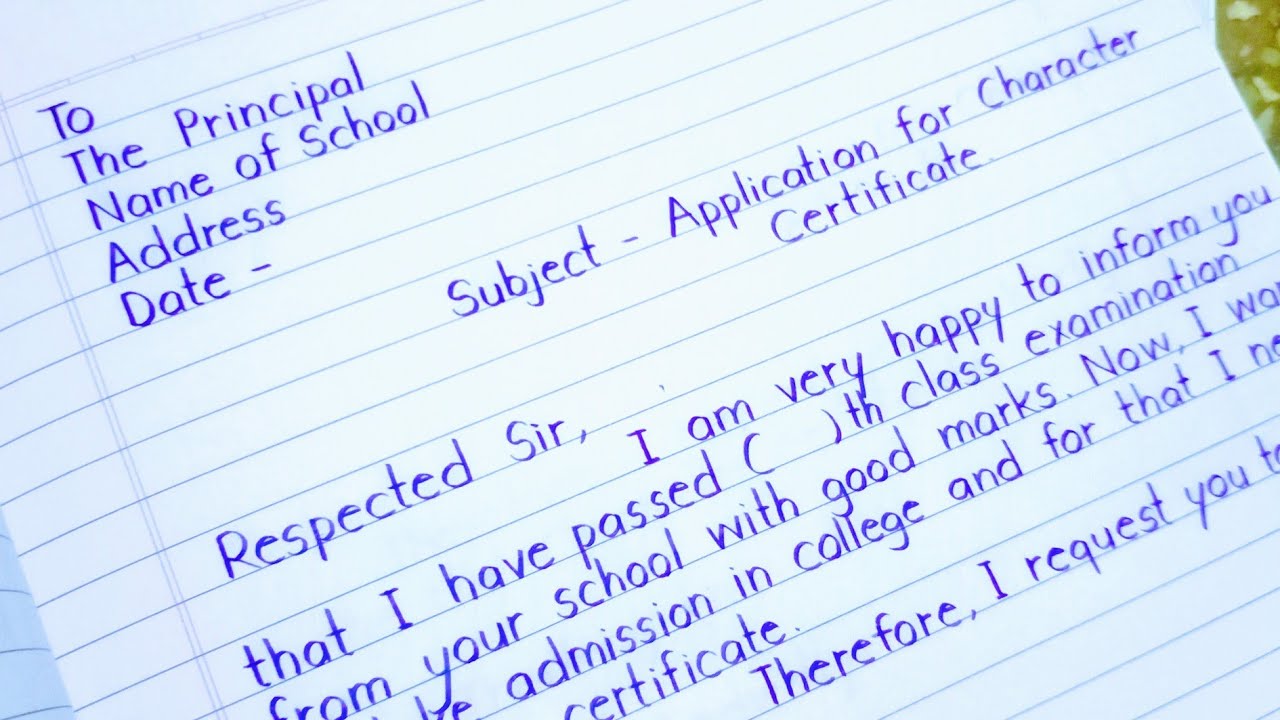 To
The Principal
Name of School
Address
Date -
Subject - Application for Character
Certificate.
Respected Sir,
I am very happy to inform you
that I have passed ( )th class examination
from your school with good marks. Now, I
admission in college and for that I
certificate.
Therefore, I request you